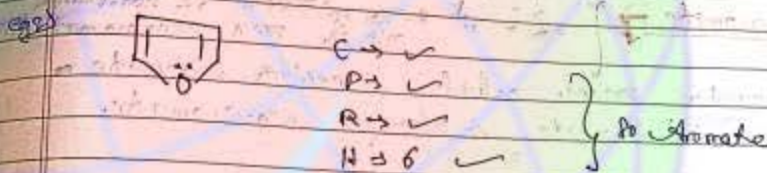 eg 2)
C → ✓
P → ✓
R → ✓
H → 6 ✓
} So Aromatic
:O